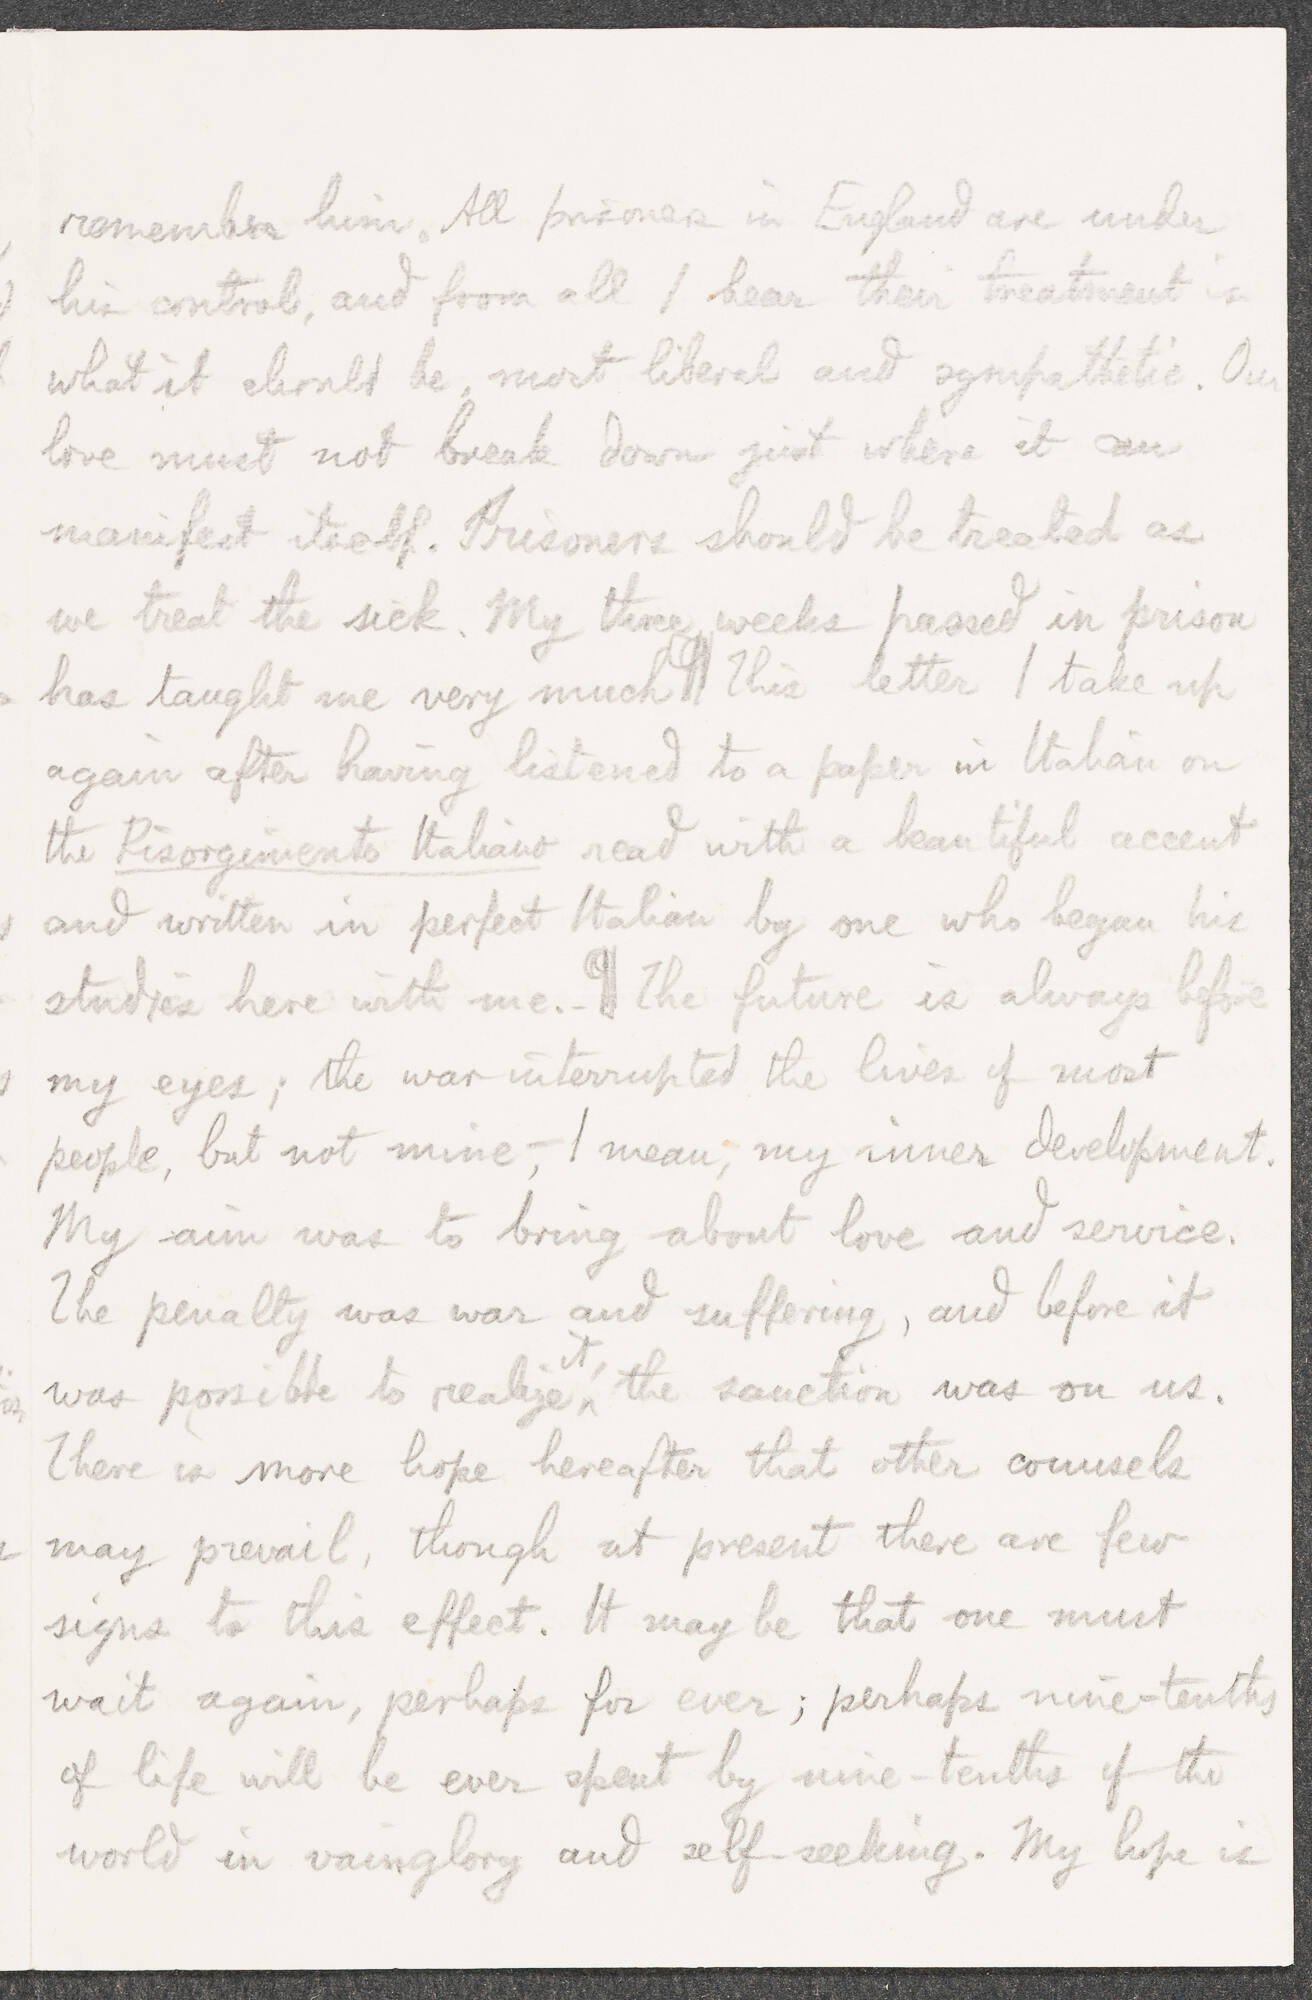 remember him. All prisoners in England are under
his control, and from all I hear their treatment is
what it should be, most liberal and sympathetic. Our
love must not break down just where it can
manifest itself. Prisoners should be treated as
we treat the sick. My three weeks passed in prison
has taught me very much ¶ This letter I take up
again after having listened to a paper in Italian on
the Risorgimento Italiano read with a beautiful accent
and written in perfect Italian by one who began his
studies here with me.- ¶ The future is always before
my eyes; the war interrupted the lives of most
people, but not mine,- I mean, my inner development.
My aim was to bring about love and service.
The penalty was war and suffering, and before it
was possible to realize it, the sanction was on us.
There is more hope hereafter that other counsels
may prevail, though at present there are few
signs to this effect. It may be that one must
wait again, perhaps for ever; perhaps nine-tenths
of life will be ever spent by nine-tenths of the
world in vainglory and self-seeking. My hope is